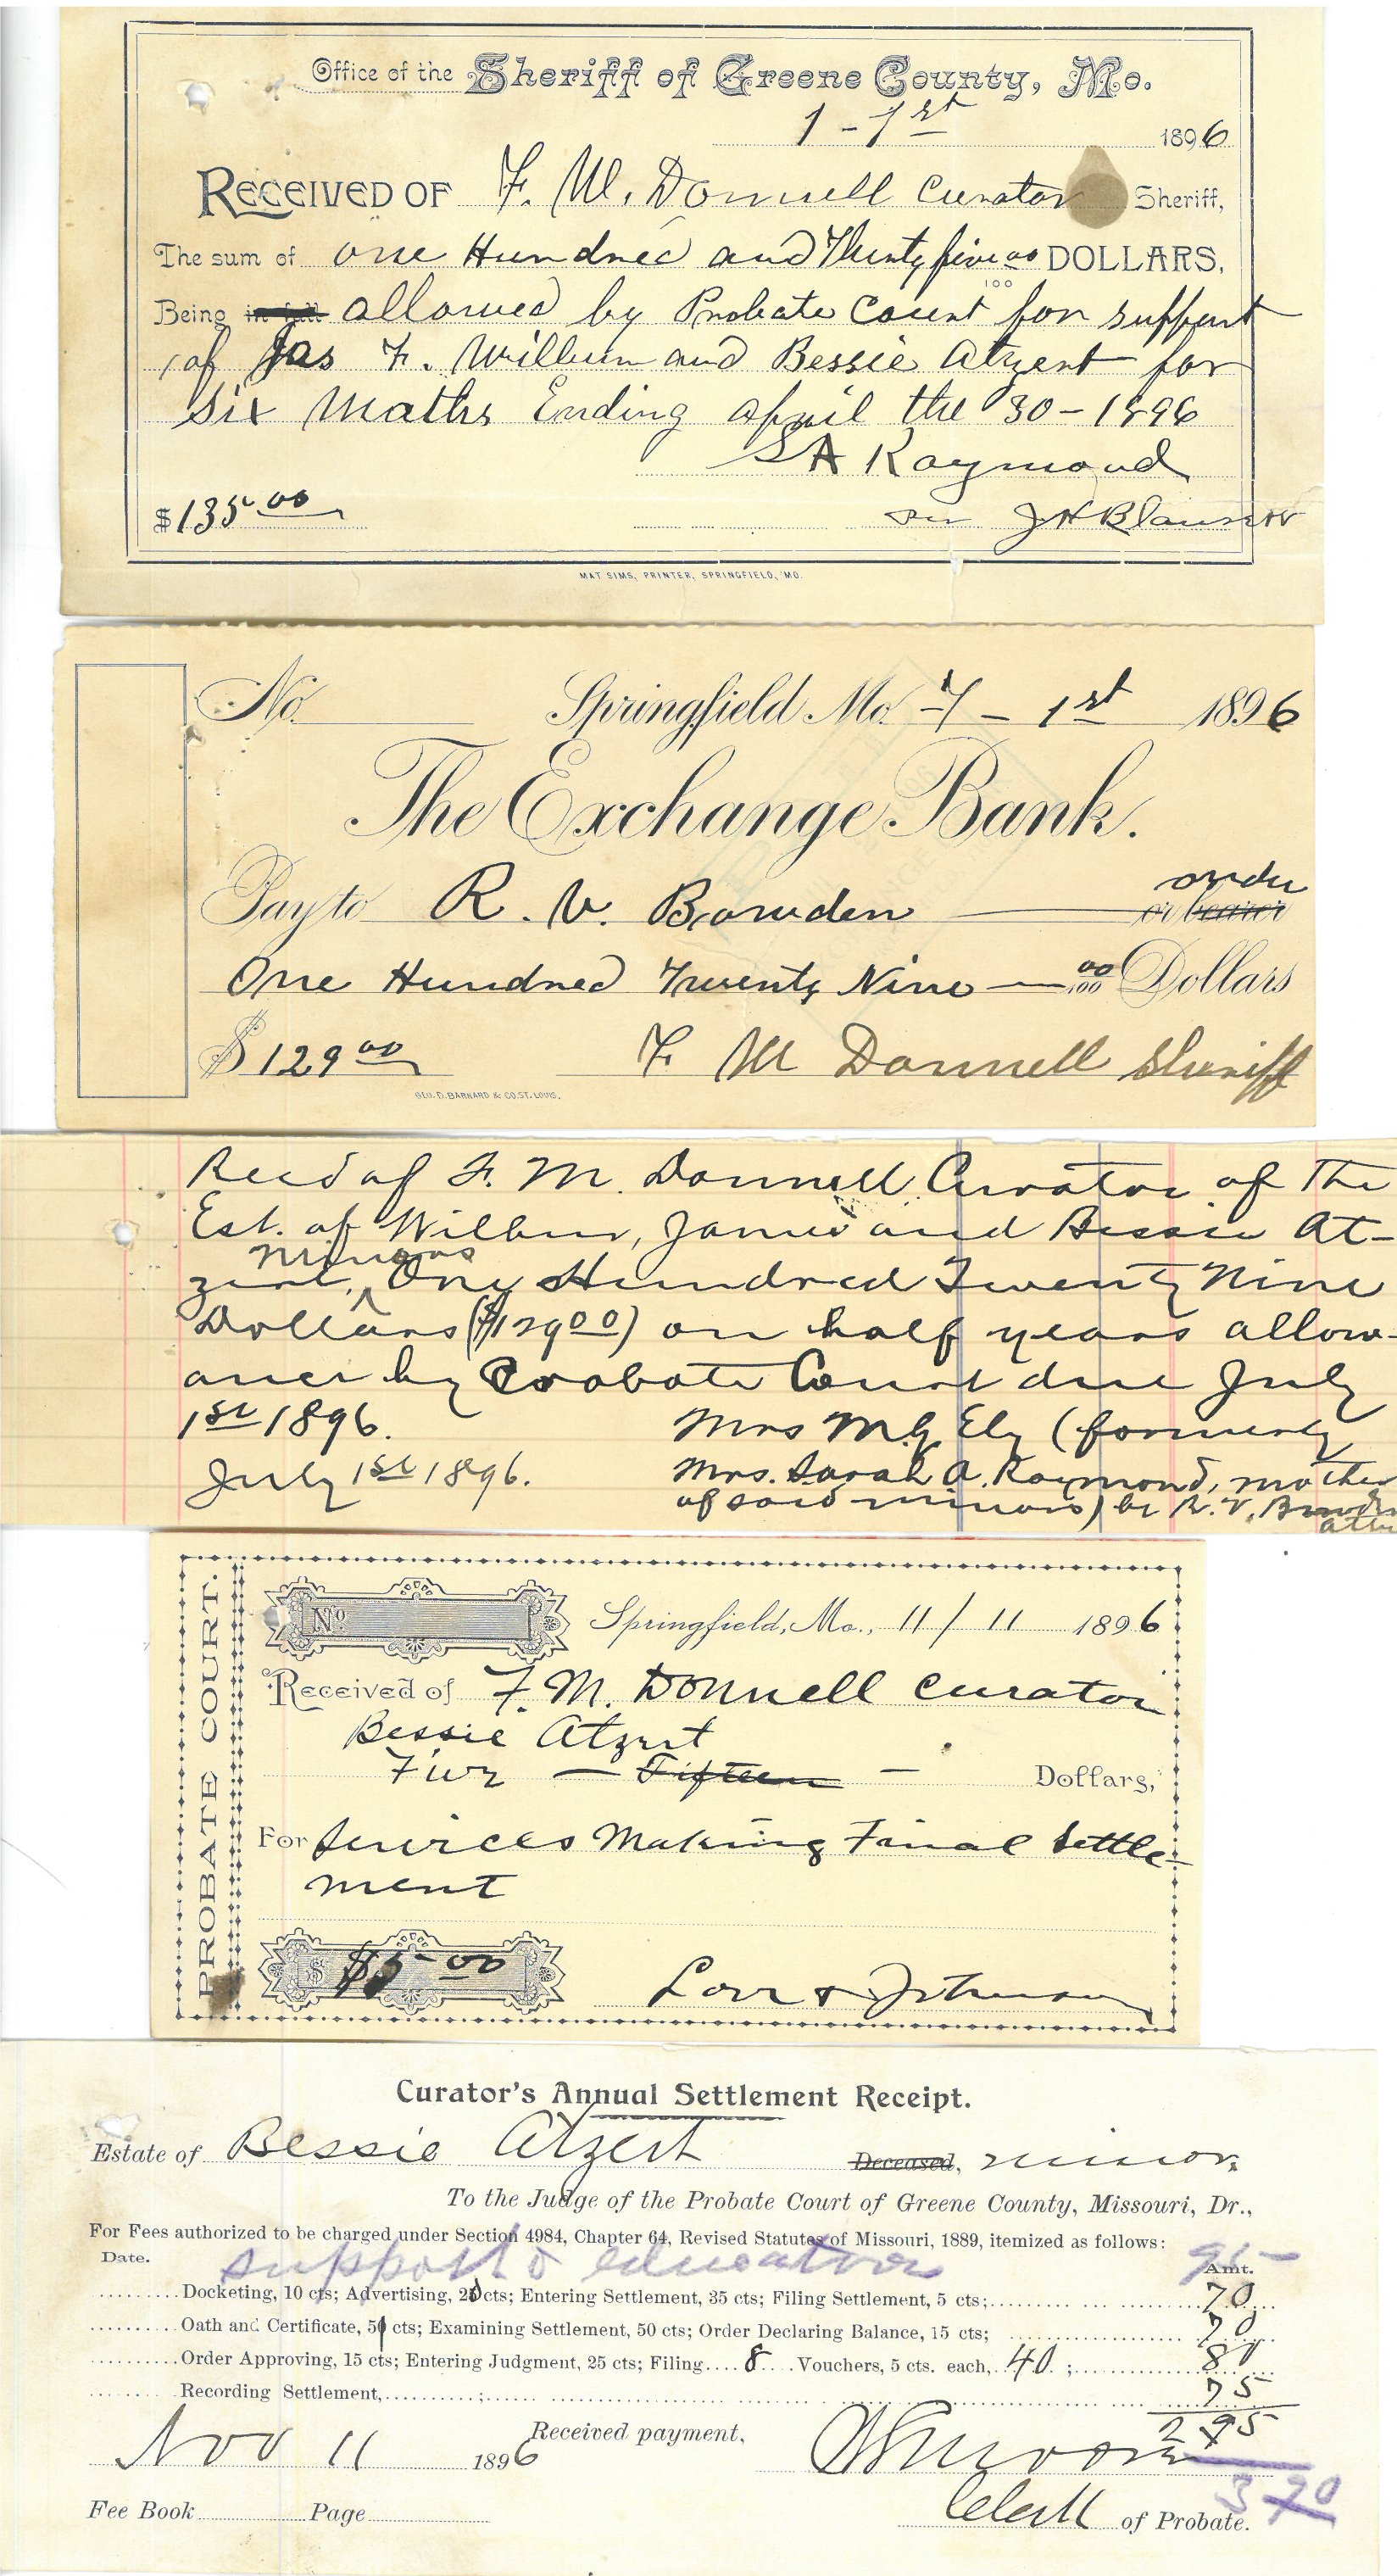 Office of the Sheriff of Greene County, Mo.
1 - 1st 1896
RECEIVED OF F. M. Donnell Curator Sheriff,
The sum of one Hundred and Thirty five 00/100 DOLLARS,
Being in full allowed by Probate Court for support
of Jas F. Wilburn and Bessie Atzert for
Six Moths Ending april the 30 - 1896
SA Raymond
$135.00 J H Blaunt
MAT SIMS, PRINTER, SPRINGFIELD, MO.
No. Springfield Mo. 7 - 1st 1896
The Exchange Bank.
order
Pay to R. V. Bowden or bearer
One Hundred Twenty Nine 00/100 Dollars
$129 00 F M Donnell Sheriff
GEO. D. BARNARD & CO. ST. LOUIS.
Recd of F. M. Donnell Curator of the
Est. of Wilbur, James and Bessie At-
minors
zert, One Hundred Twenty Nine
Dollars ($129 00) on half years allow-
ance by Probate Court due July
1st 1896. Mrs M. G. Ely (formerly
July 1st 1896. Mrs. Sarah A. Raymond, mother
of said minors) by R. V. Bowden
atty
PROBATE COURT.
No Springfield, Mo., 11/11 1896
Received of F. M. Donnell Curator
Bessie Atzert
Five — Fifteen — Dollars,
For Services Making Final Settle-
ment
$ $5.00
Curator's Annual Settlement Receipt.
Estate of Bessie Atzert Deceased, minor.
To the Judge of the Probate Court of Greene County, Missouri, Dr.,
For Fees authorized to be charged under Section 4984, Chapter 64, Revised Statutes of Missouri, 1889, itemized as follows:
support & education 95
Date. Amt.
Docketing, 10 cts; Advertising, 20 cts; Entering Settlement, 35 cts; Filing Settlement, 5 cts; 70
Oath and Certificate, 5 cts; Examining Settlement, 50 cts; Order Declaring Balance, 15 cts; 70
Order Approving, 15 cts; Entering Judgment, 25 cts; Filing 8 Vouchers, 5 cts. each, 40; 80
Recording Settlement, 75
2 95
Received payment,
Nov 11 1896
3 90
Fee Book Page Clerk of Probate.